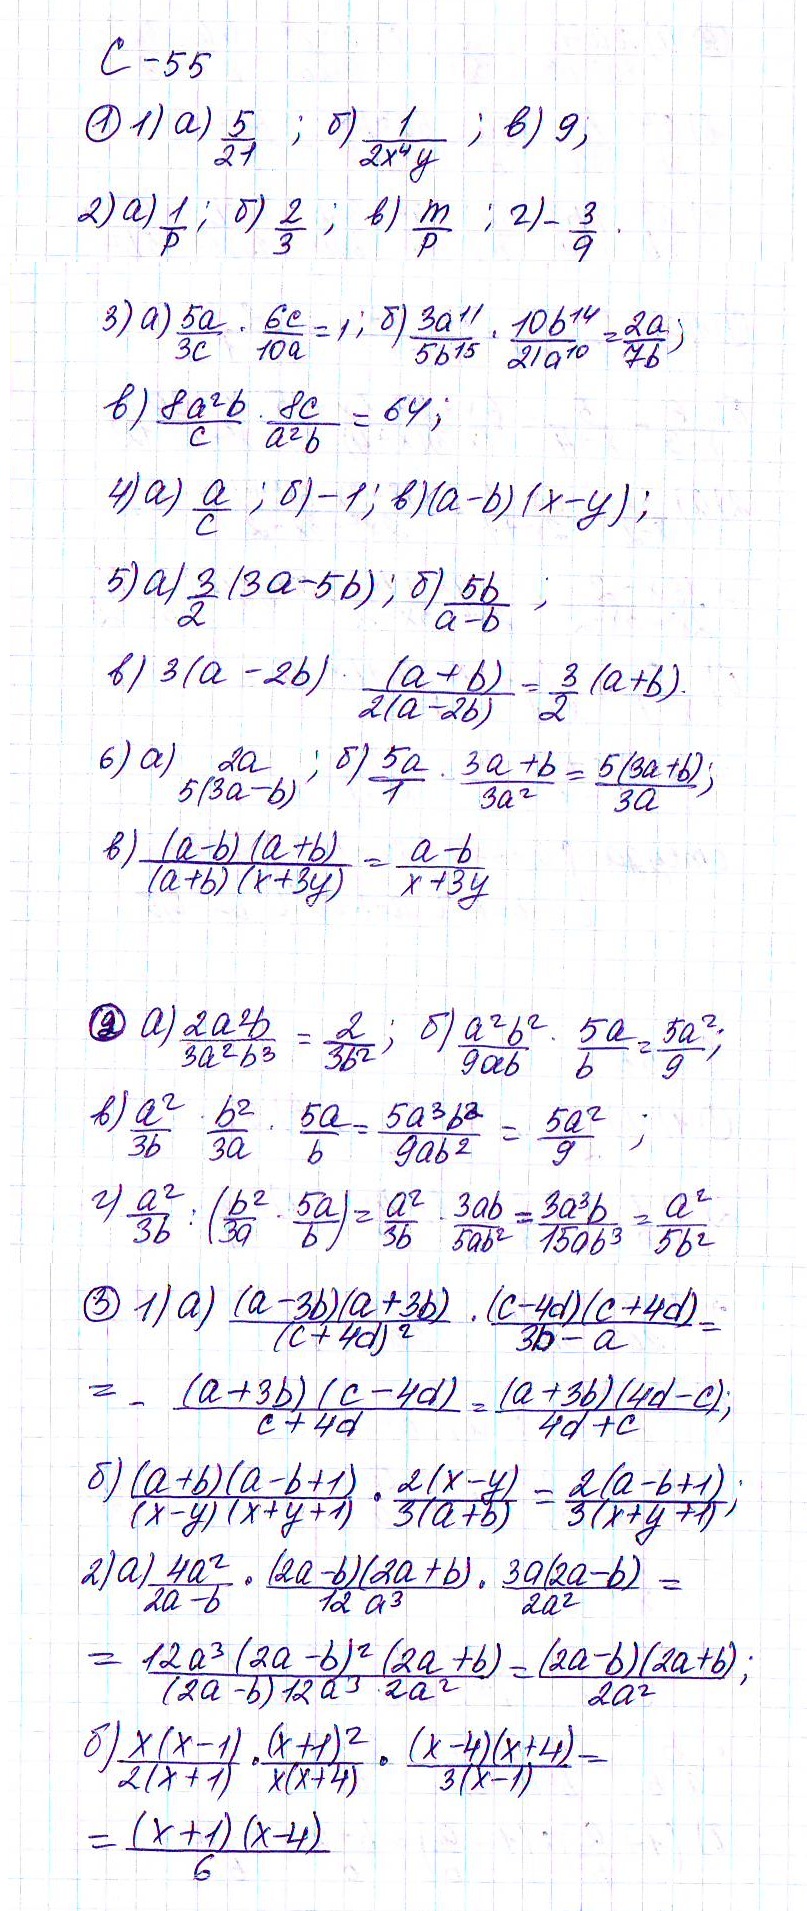 С-55
① 1) а) 5/21 ; б) 1/(2x⁴y) ; в) 9;
2) а) 1/p ; б) 2/3 ; в) m/p ; г) - 3/9 .
3) а) 5a/3c · 6c/10a = 1; б) 3a¹¹/5b¹⁵ · 10b¹⁴/21a¹⁰ = 2a/7b ;
в) 8a²b/c · 8c/a²b = 64;
4) а) a/c ; б) -1; в) (a-b)(x-y);
5) а) 3/2 (3a-5b); б) 5b/(a-b) ;
в) 3(a-2b) · (a+b)/(2(a-2b)) = 3/2 (a+b).
6) а) 2a/(5(3a-b)) ; б) 5a/1 · (3a+b)/3a² = 5(3a+b)/3a ;
в) (a-b)(a+b)/((a+b)(x+3y)) = (a-b)/(x+3y)
② а) 2a²b/3a²b³ = 2/3b² ; б) a²b²/9ab · 5a/b = 5a²/9 ;
в) a²/3b · b²/3a · 5a/b = 5a³b²/9ab² = 5a²/9 ;
г) a²/3b : (b²/3a · 5a/b) = a²/3b · 3ab/5ab² = 3a³b/15ab³ = a²/5b²
③ 1) а) (a-3b)(a+3b)/(c+4d)² · (c-4d)(c+4d)/(3b-a) =
= - (a+3b)(c-4d)/(c+4d) = (a+3b)(4d-c)/(4d+c) ;
б) (a+b)(a-b+1)/((x-y)(x+y+1)) · 2(x-y)/(3(a+b)) = 2(a-b+1)/(3(x+y+1)) ;
2) а) 4a²/(2a-b) · (2a-b)(2a+b)/12a³ · 3a(2a-b)/2a² =
= 12a³(2a-b)²(2a+b)/((2a-b)12a³ · 2a²) = (2a-b)(2a+b)/2a² ;
б) x(x-1)/(2(x+1)) · (x+1)²/(x(x+4)) · (x-4)(x+4)/(3(x-1)) =
= (x+1)(x-4)/6